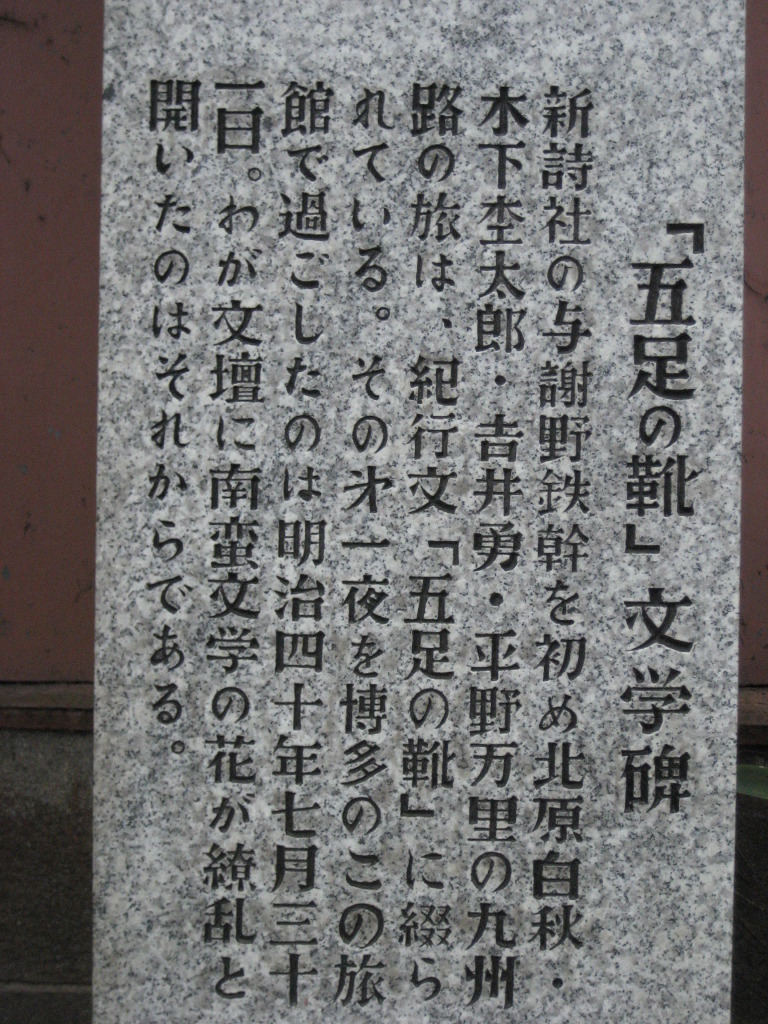 「五足の靴」文学碑
新詩社の与謝野鉄幹を初め北原白秋・
木下杢太郎・吉井勇・平野万里の九州
路の旅は、紀行文「五足の靴」に綴ら
れている。その才一夜を博多のこの旅
館で過ごしたのは明治四十年七月三十
一日。わが文壇に南蛮文学の花が繚乱と
開いたのはそれからである。